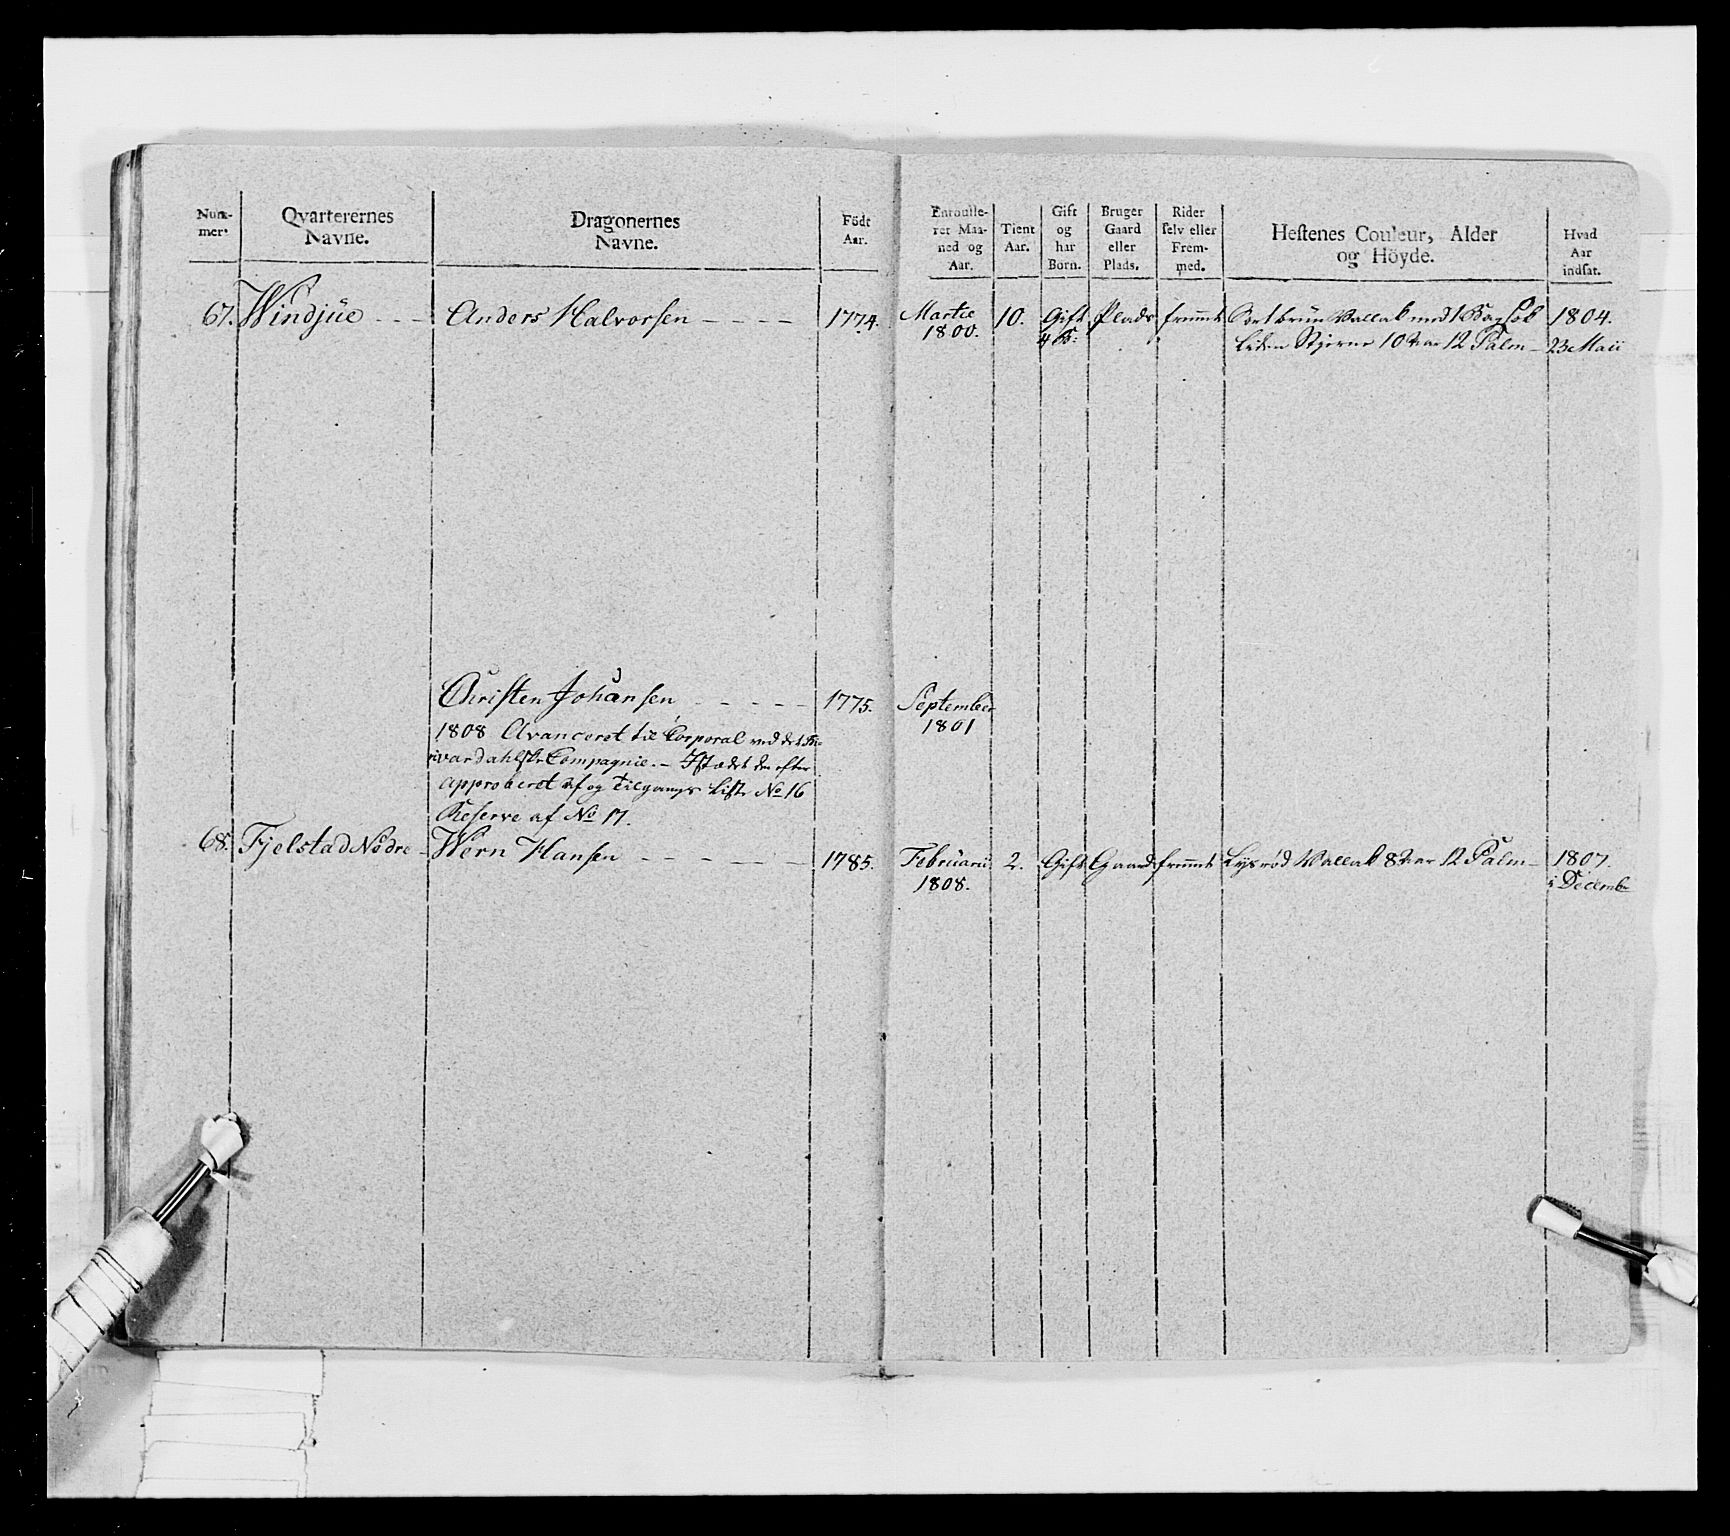 Num-
mer.
Qvarterernes
Navne.
Dragonernes
Navne.
Födt
Aar.
Enroulle-
ret Maa-
ned og
Aar.
Tient
Aar.
Gift
og
har
Börn.
Bruger
Gaard
eller
Plads.
Rider
selv eller
Frem-
med.
Hestenes Couleur, Alder
og Höyde.
Hvad
Aar
indsat.
67. Windjüe - - - Anders Halvorsen - - - - 1774. Martie 10. Gift Plads fremmet Sortbrün Vallak med 1 Bag Sok 1804.
1800. 4 B: liden Stjerne 10 Aar 12 Palm - 23 Maii
Christen Johansen - - - - - 1775. September
1801
1808 Avanceret til Corporal ved det
Compagnie. - Istædet den efter
approberet Af og Tilgangs Liste No 16
Reserve af No 17.
68. Fjelstad Nödre - Wern Hansen - - - - - 1785. Februarii 2. Gift Gaard fremmet Lysröd Vallak 8 Aar 12 Palm - 1807.
1808. i Decembr